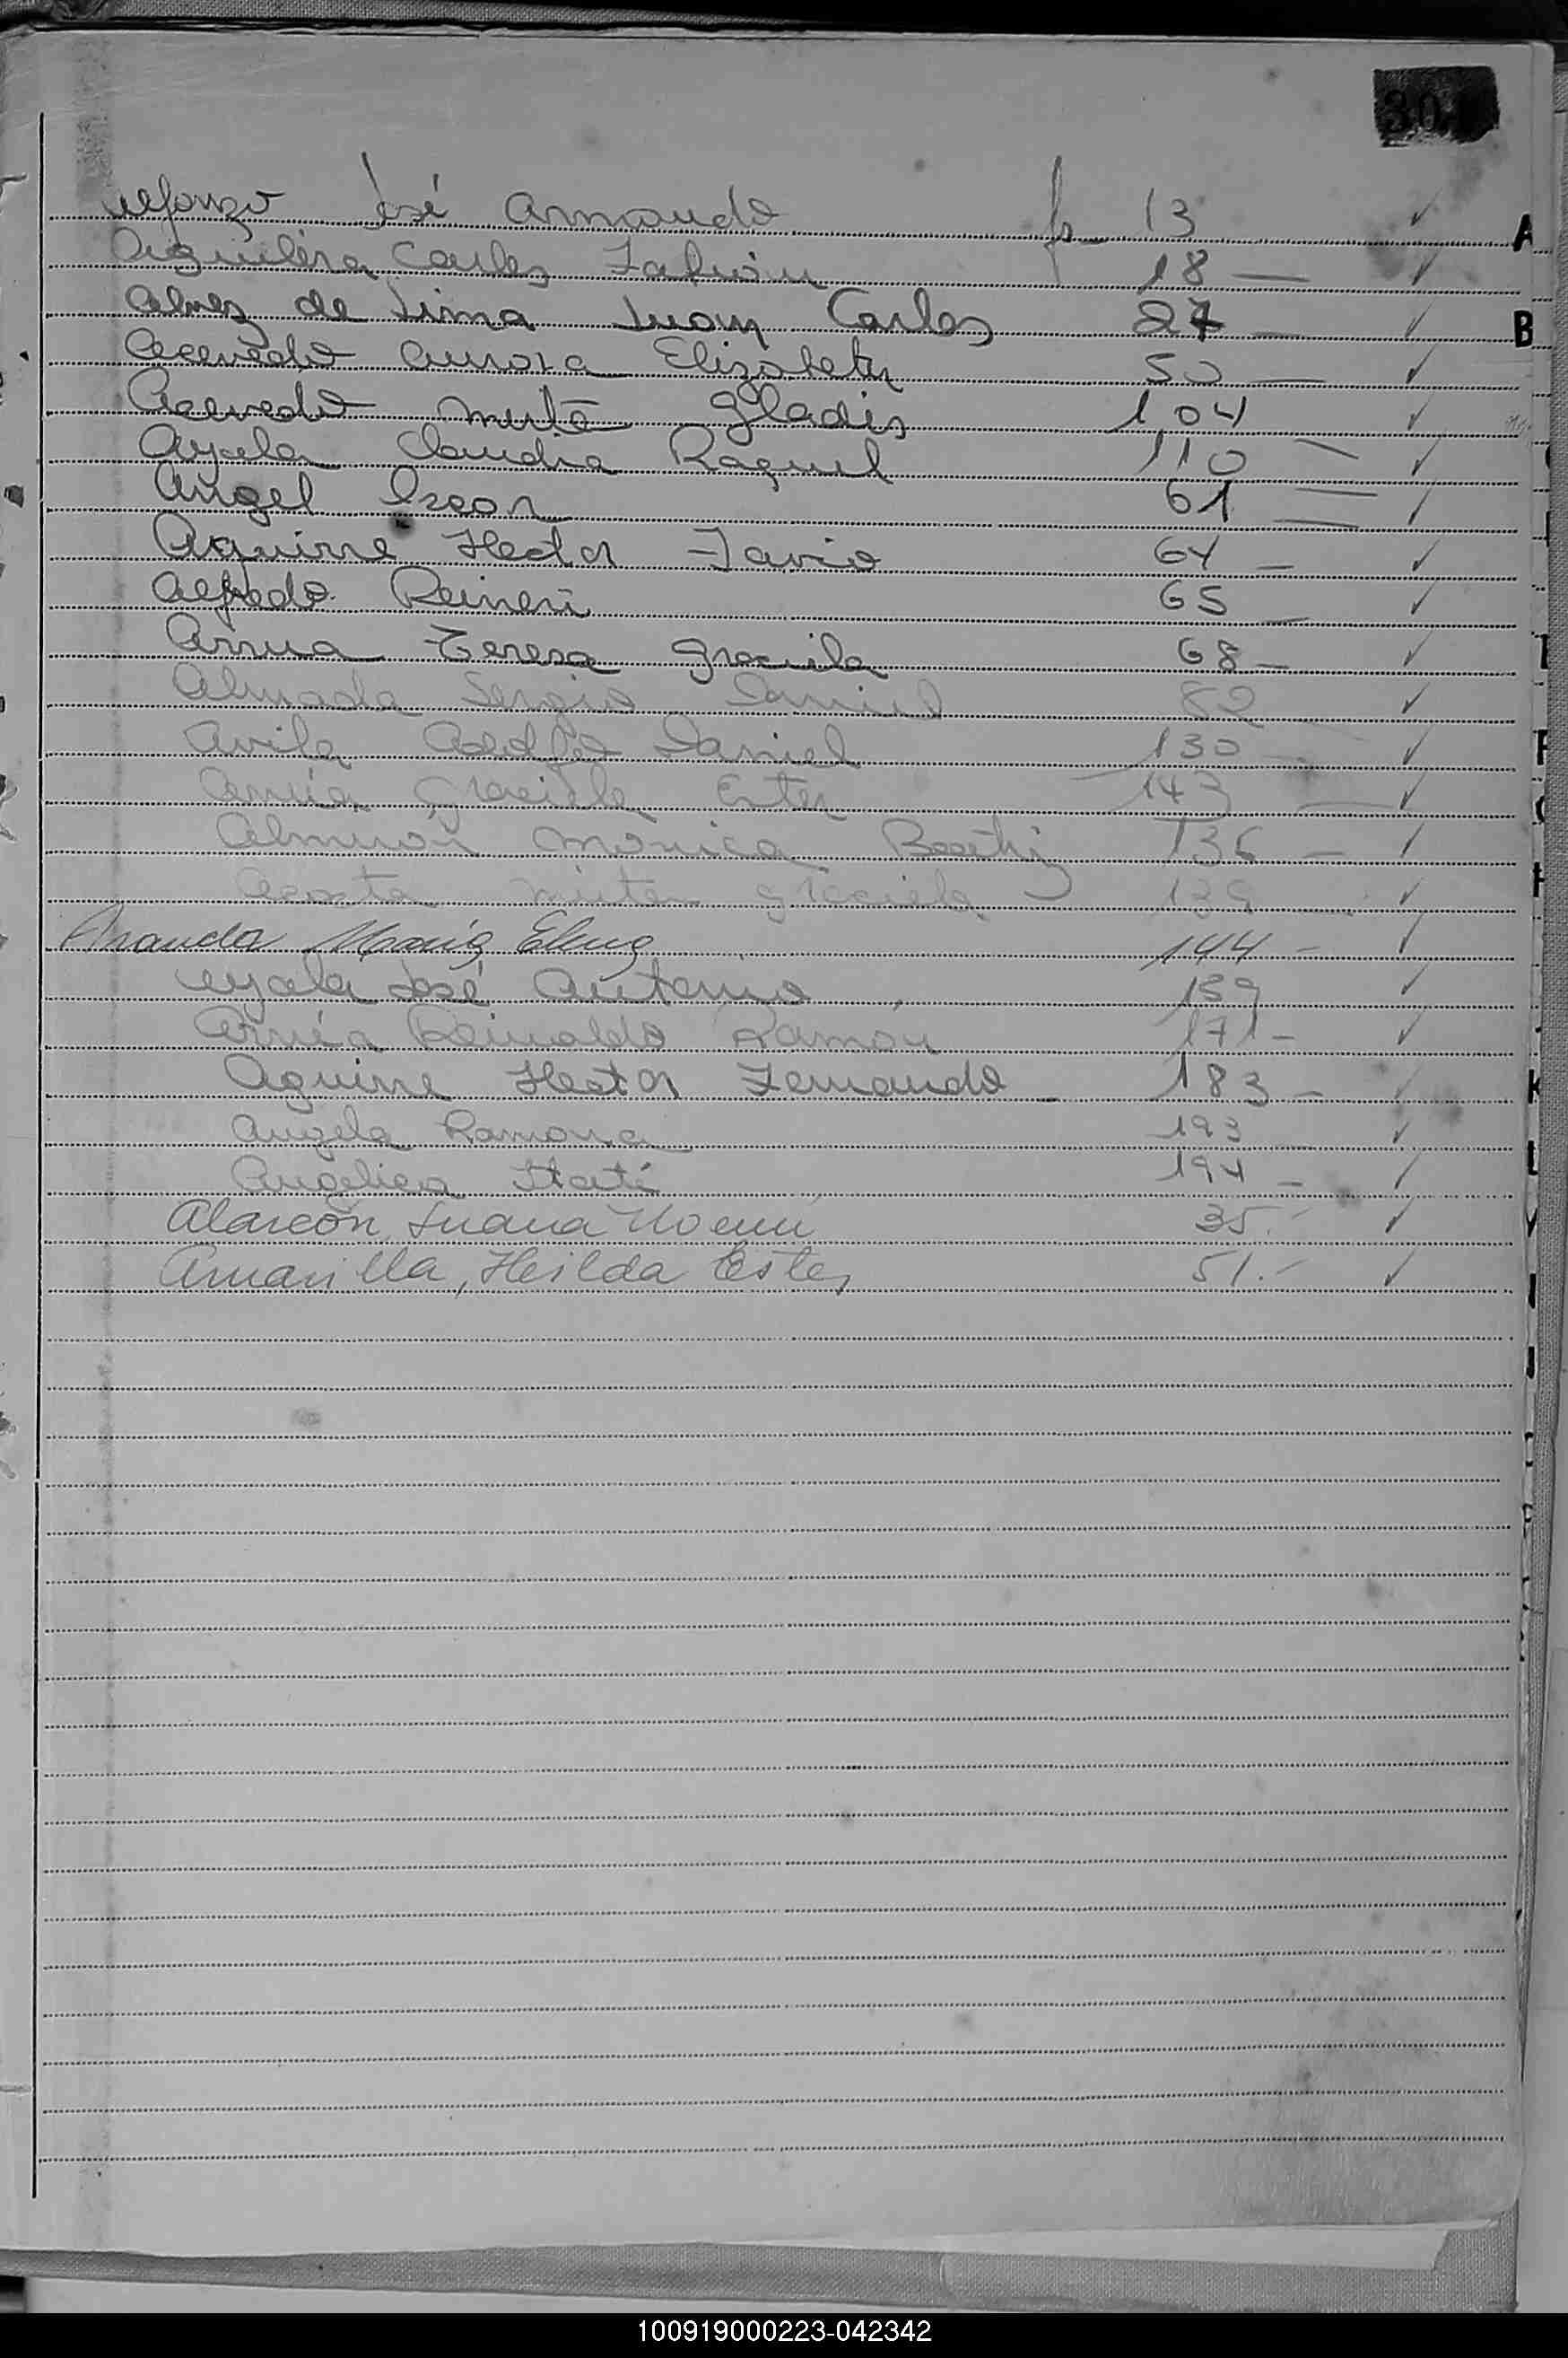 Alfonzo José Armando fo 13 ✓
Aguilera Carlos Fabián 18 — ✓
Alvez de Lima Juan Carlos 27 — ✓
Acevedo Aurora Elizabeth 50 — ✓
Acevedo Mirta Gladis 104 ✓
Ayala Claudia Raquel 110 — ✓
Angel Oscar 61 — ✓
Aguirre Hector Favio 64 — ✓
Alfredo Reineri 65 — ✓
Arrua Teresa Graciela 68 — ✓
Almada Sergio Daniel 82 ✓
Avila Adolfo Daniel 130 — ✓
Arrúa Graciela Ester 143 — ✓
Almirón Monica Beatriz 136 — ✓
Acosta Mirta Graciela 139 ✓
Aranda María Elena 144 — ✓
Ayala José Antonio 159 ✓
Arrúa Reinaldo Ramón 171 — ✓
Aguirre Hector Fernando 183 — ✓
Angela Ramona 193 — ✓
Angelica Itatí 194 — ✓
Alarcón, Juana Noemí 35.- ✓
Amarilla, Hilda Ester 51.- ✓
A
B
K
L
100919000223-042342